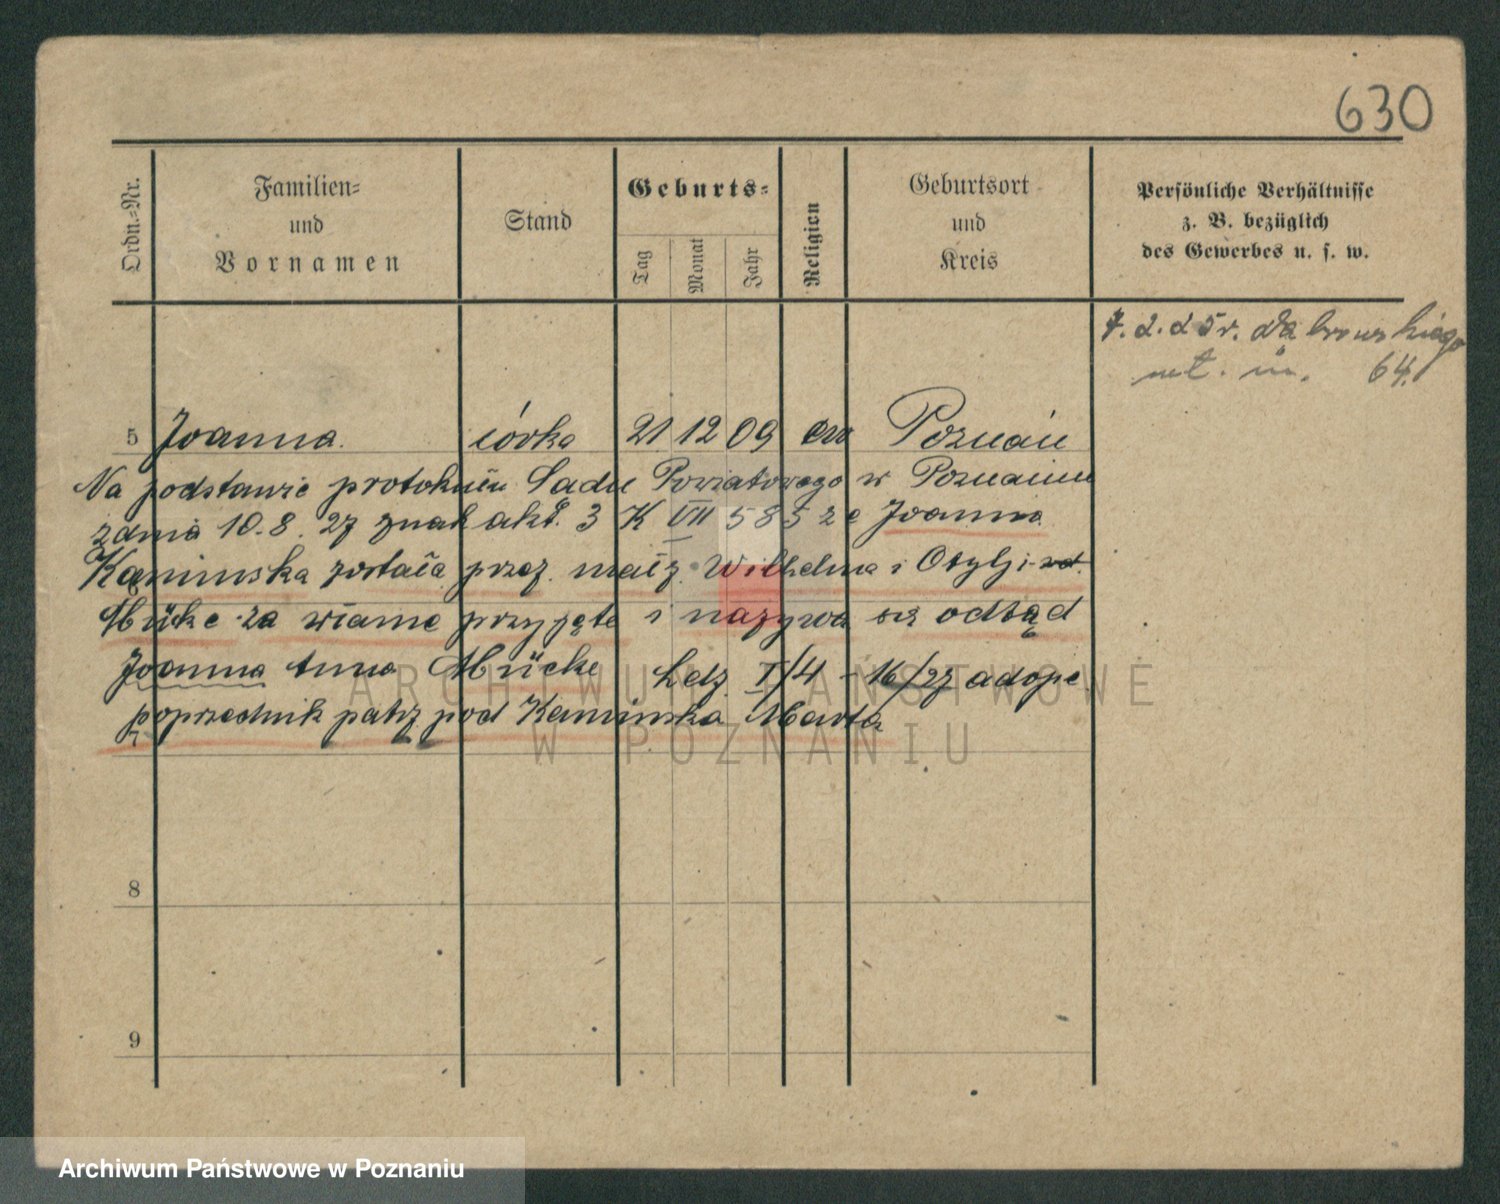 630
Ordn.-Nr.
Familien-
und
Vornamen
Stand
Geburts-
Tag
Monat
Jahr
Religion
Geburtsort
und
Kreis
Persönliche Verhältnisse
z. B. bezüglich
des Gewerbes u. s. w.
2. 25 r. Dąbrowskiego
64.
5 Joanna córka 21 12 09 ew Poznań
Na podstawie protokułu Sadu Powiatowego w Poznaniu
zdnia 10.8.27 znak akt. 3 K VII 585 ze Joanna
Kaminska została przez małż. Wilhelma i Otylji
Mücke za wlasne przyjęte i nazywa się odtąd
Joanna Anna Mücke Ldz I/4 - 16/27 adopc.
poprzednik patrz pod Kaminska Marta
8
9
ARCHIWUM PAŃSTWOWE
W POZNANIU
Archiwum Państwowe w Poznaniu